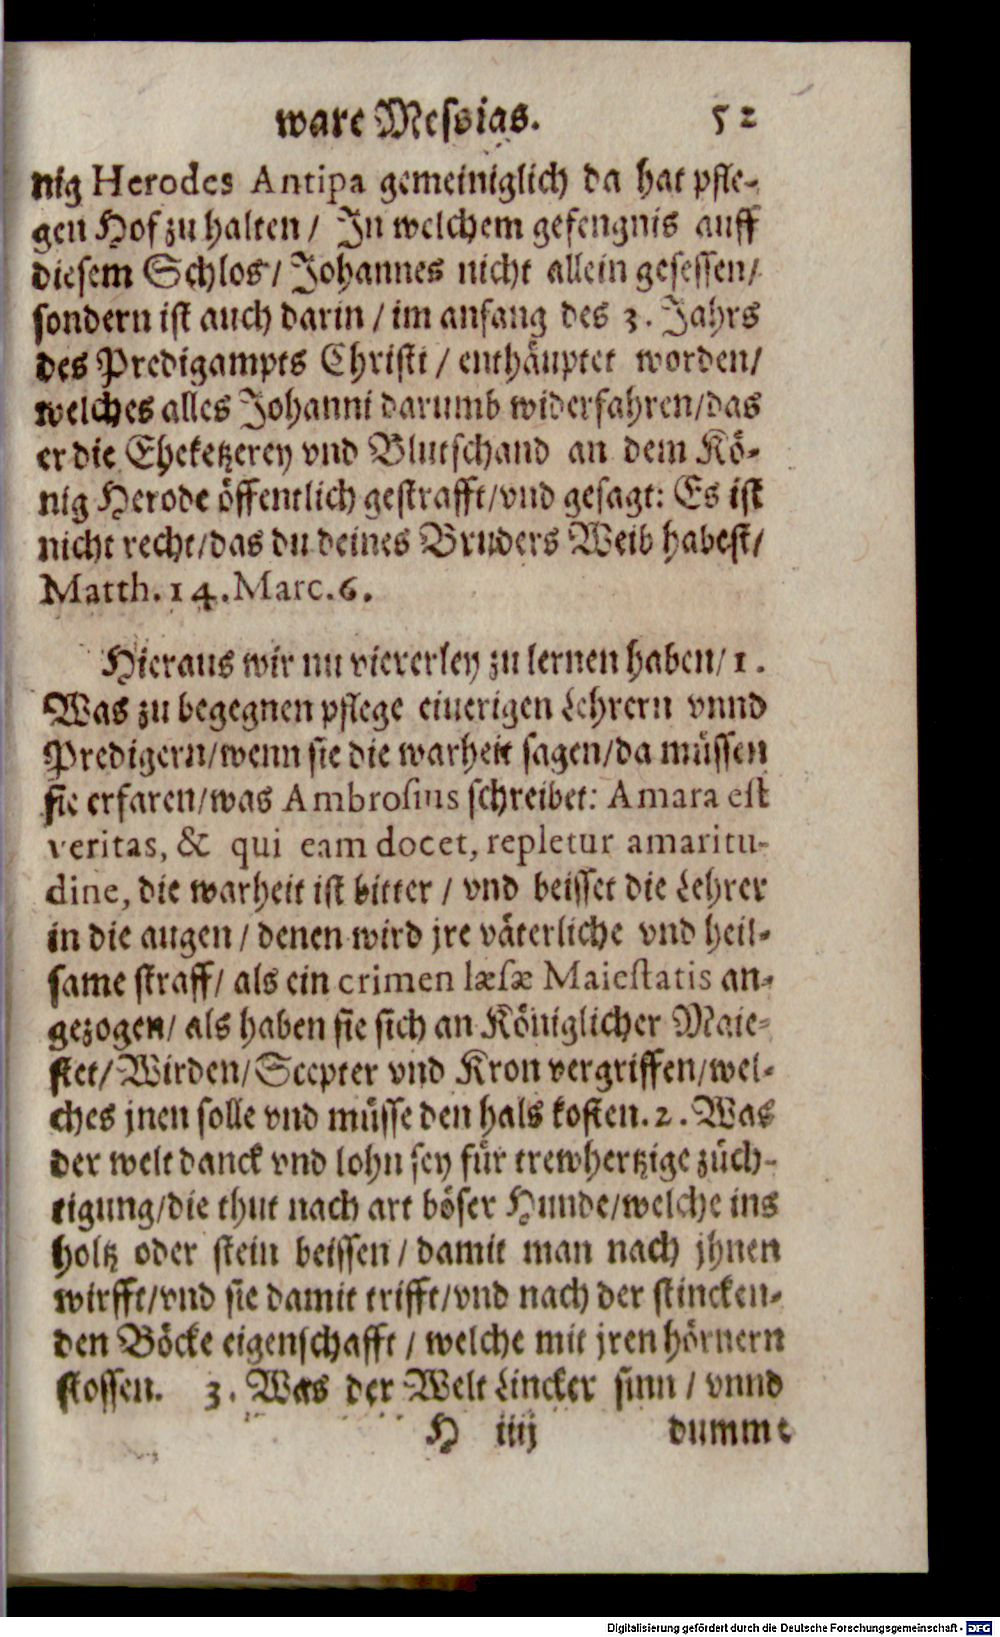 ware Messias. 52
nig Herodes Antipa gemeiniglich da hat pfle-
gen Hof zu halten / In welchem gefengnis auff
diesem Schlos / Johannes nicht allein gesessen /
sondern ist auch darin / im anfang des 3. Jahrs
des Predigampts Christi / enthäuptet worden /
welches alles Johanni darumb widerfahren / das
er die Eheketzerey vnd Blutschand an dem Kö-
nig Herode öffentlich gestrafft / vnd gesagt: Es ist
nicht recht / das du deines Bruders Weib habest /
Matth. 14. Marc. 6.
Hieraus wir nu viererley zu lernen haben / 1.
Was zu begegnen pflege eiuerigen Lehrern vnnd
Predigern / wenn sie die warheit sagen / da müssen
sie erfaren / was Ambrosius schreibet: Amara est
veritas, & qui eam docet, repletur amaritu-
dine, die warheit ist bitter / vnd beisset die Lehrer
in die augen / denen wird jre väterliche vnd heil-
same straff / als ein crimen læsæ Maiestatis an-
gezogen / als haben sie sich an Königlicher Maie-
stet / Wirden / Scepter vnd Kron vergriffen / wel-
ches jnen solle vnd müsse den hals kosten. 2. Was
der welt danck vnd lohn sey für trewhertzige züch-
tigung / die thut nach art böser Hunde / welche ins
holtz oder stein beissen / damit man nach jhnen
wirfft / vnd sie damit trifft / vnd nach der stincken-
den Böcke eigenschafft / welche mit jren hörnern
stossen. 3. Was der Welt Lincker sinn / vnnd
H iiij dumme
Digitalisierung gefördert durch die Deutsche Forschungsgemeinschaft - DFG